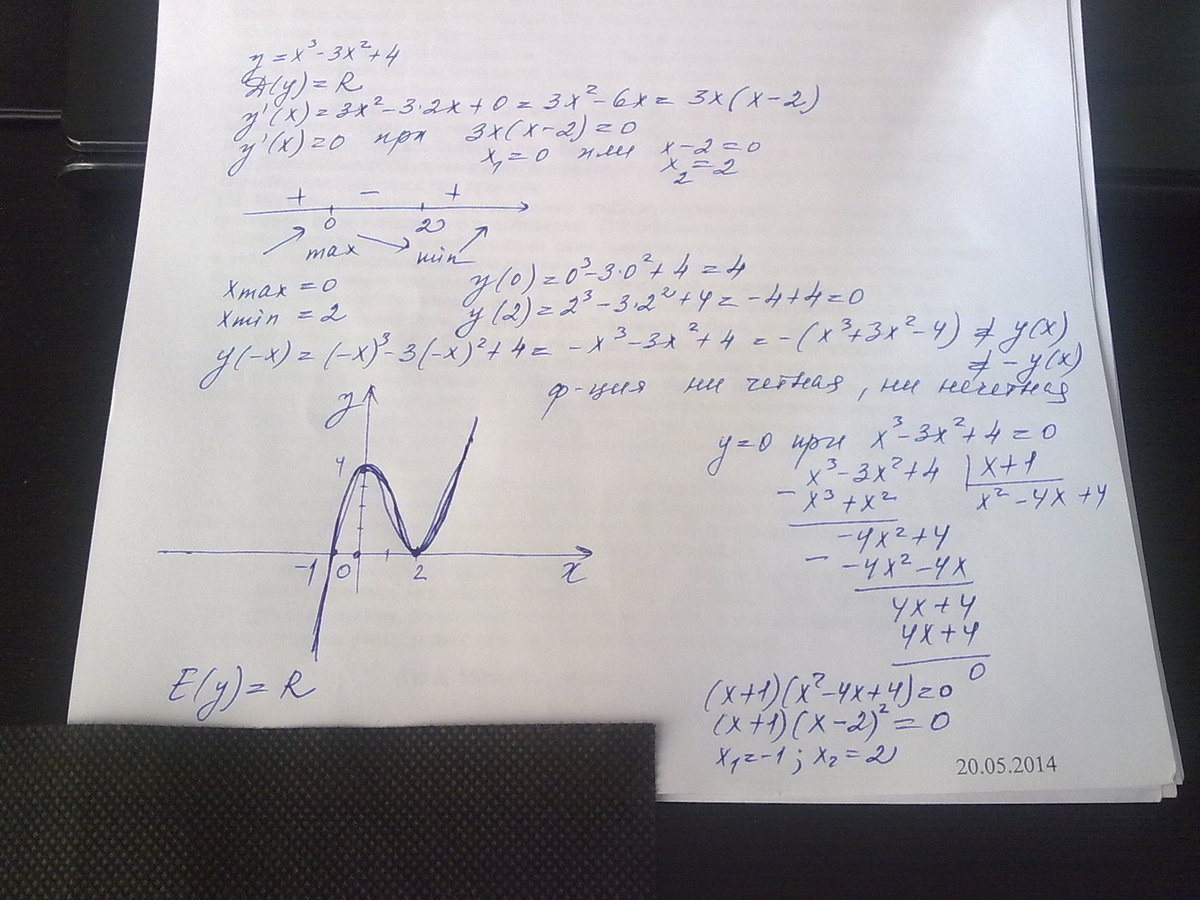 y = x³ - 3x² + 4
D(y) = R
y'(x) = 3x² - 3·2x + 0 = 3x² - 6x = 3x(x-2)
y'(x) = 0 при 3x(x-2) = 0
x₁ = 0 или x-2 = 0
x₂ = 2
+ - +
0 2
max min
x max = 0 y(0) = 0³ - 3·0² + 4 = 4
x min = 2 y(2) = 2³ - 3·2² + 4 = -4 + 4 = 0
y(-x) = (-x)³ - 3(-x)² + 4 = -x³ - 3x² + 4 = -(x³ + 3x² - 4) ≠ y(x)
≠ -y(x)
ф-ция ни четная, ни нечетная
y
4
-1 0 2 x
E(y) = R
y = 0 при x³ - 3x² + 4 = 0
x³ - 3x² + 4 | x + 1
- x³ + x² x² - 4x + 4
-4x² + 4
- -4x² - 4x
4x + 4
4x + 4
0
(x+1)(x² - 4x + 4) = 0
(x+1)(x-2)² = 0
x₁ = -1; x₂ = 2
20.05.2014